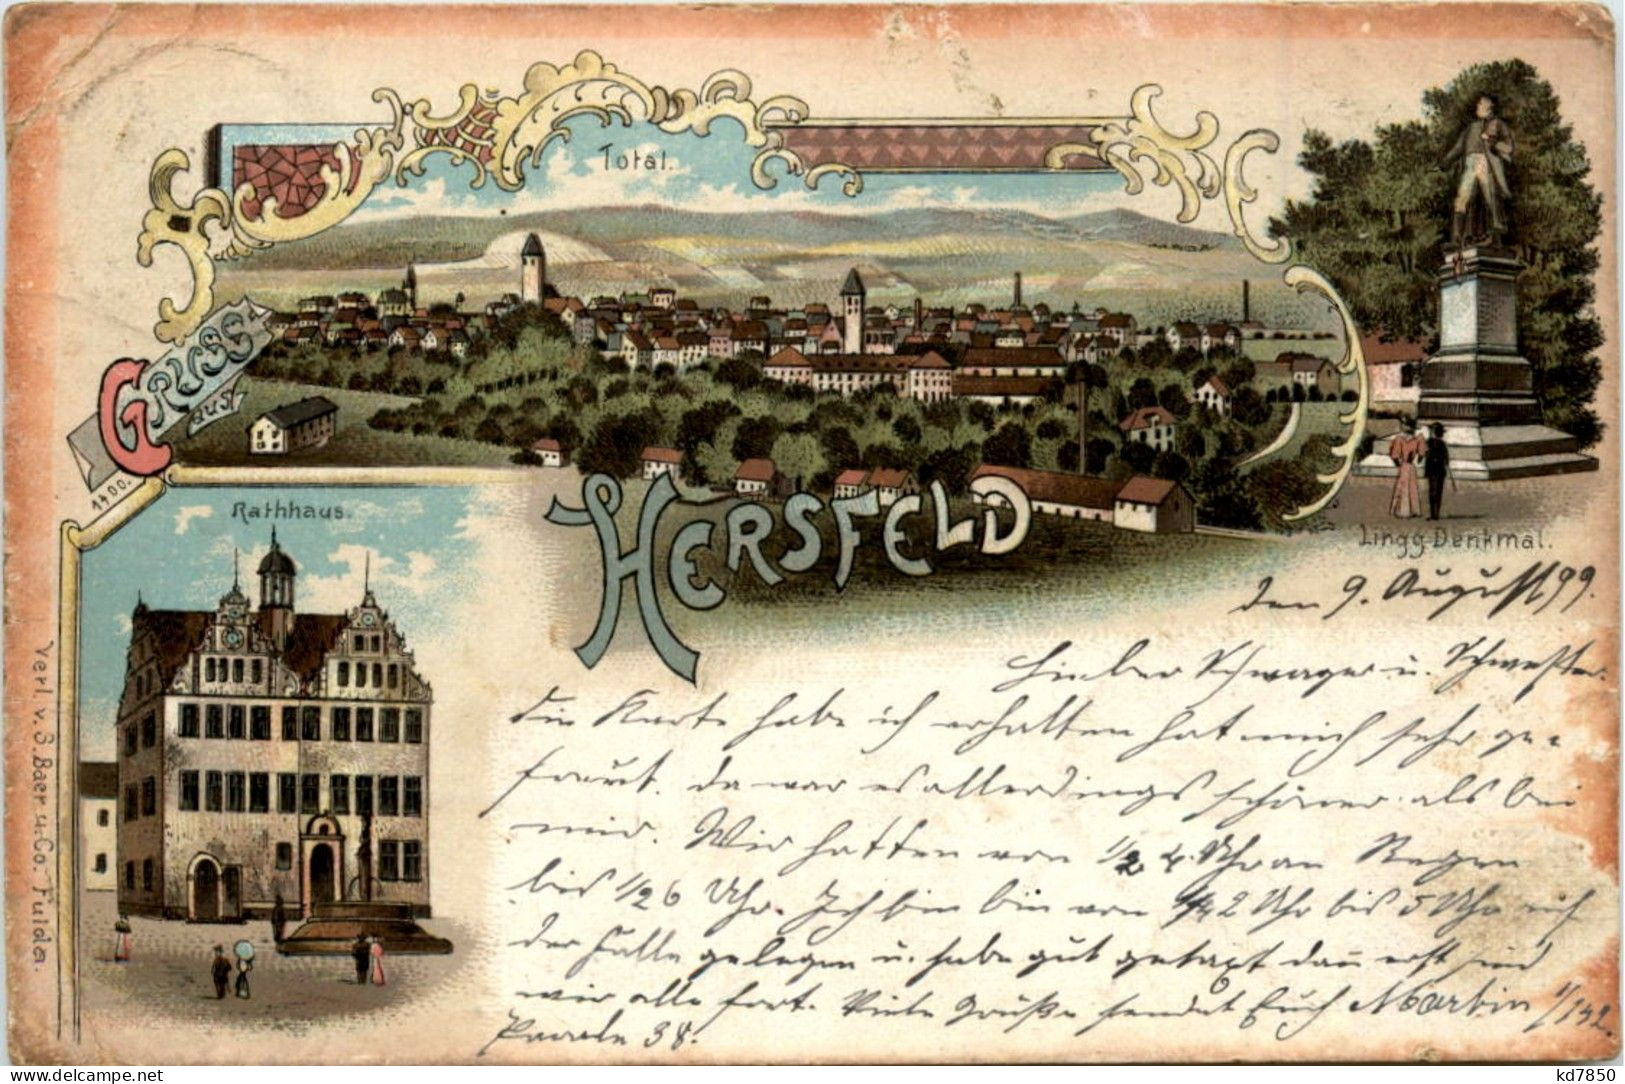 Total.
GRUSS
aus
1400.
HERSFELD
Rathhaus.
Lingg-Denkmal.
Verl. v. S. Baer u. Co. Fulda.
den 9. August 99.
Lieber Schwager u. Schwester.
die Karte habe ich erhalten hat mich sehr ge-
freut. da war es allerdings schöner als bei
mir. Wir hatten von 1/2 4 Uhr an Regen
bis 1/2 6 Uhr. Ich bin von 2 Uhr bis 5 Uhr auf
der Falle gelegen u. habe gut dann erst sind
wir alle fort. Viele Grüße sendet Euch
Parole 38.
delcampe.net
kd7850